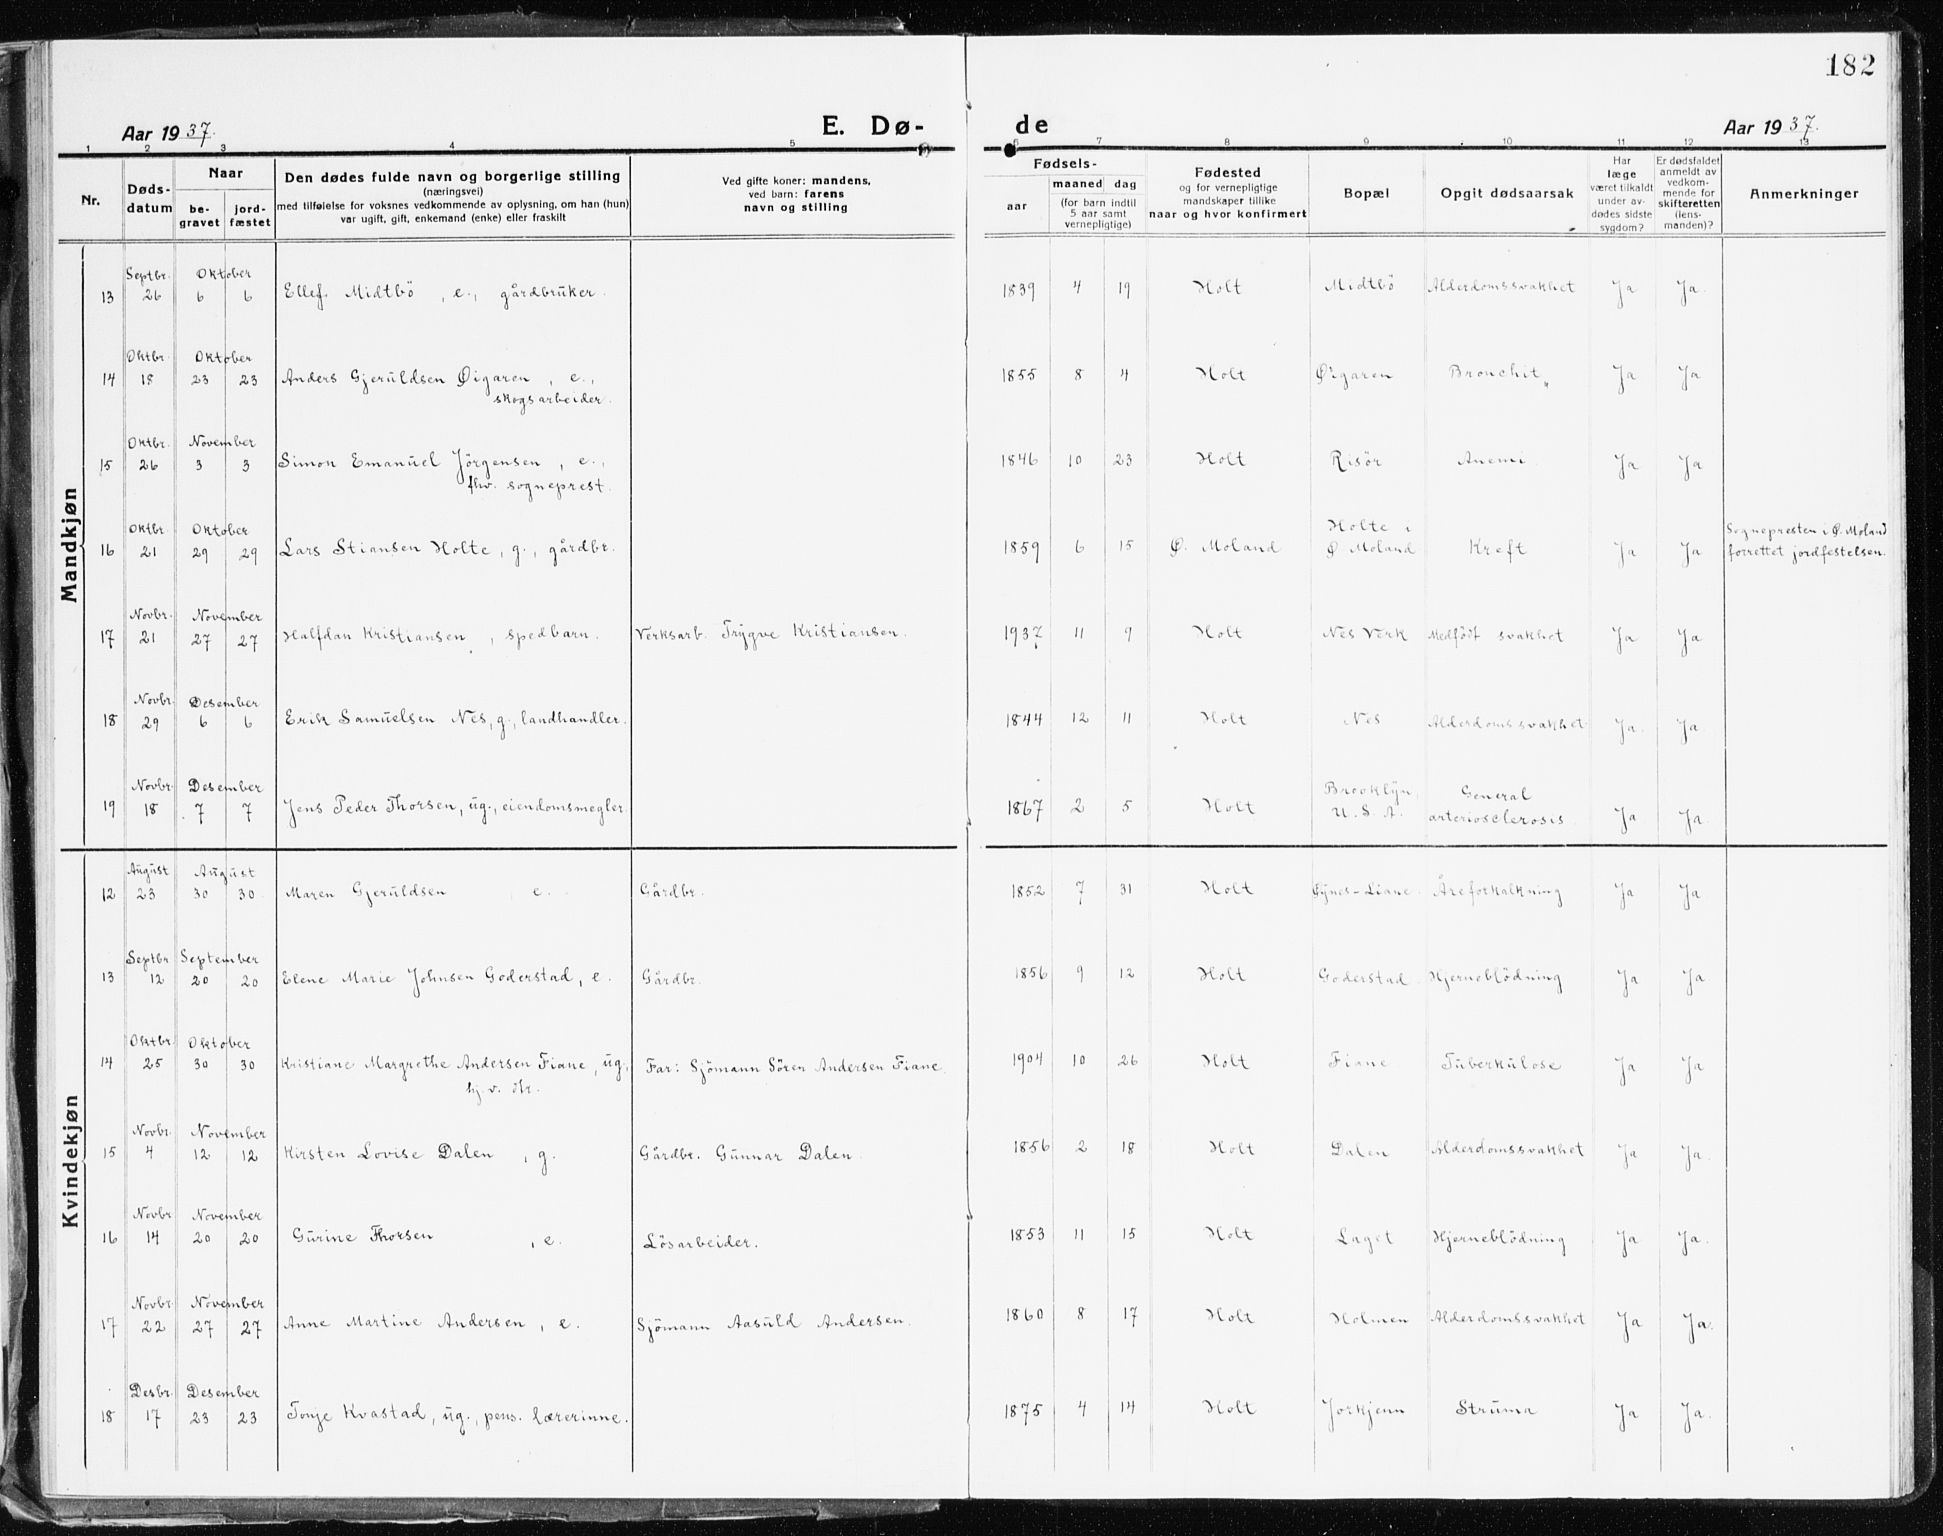 182
Aar 1937. E. Dø- de Aar 1937.
1 2 3 4 5 6 7 8 9 10 11 12 13
Nr.
Døds-
datum
Naar
be-
gravet
jord-
fæstet
Den dødes fulde navn og borgerlige stilling
(næringsvei)
med tilføielse for voksnes vedkommende av oplysning, om han (hun)
var ugift, gift, enkemand (enke) eller fraskilt
Ved gifte koner: mandens,
ved barn: farens
navn og stilling
Fødsels-
aar
maaned dag
(for barn indtil
5 aar samt
vernepligtige)
Fødested
og for vernepligtige
mandskaper tillike
naar og hvor konfirmert
Bopæl
Opgit dødsaarsak
Har
læge
været tilkaldt
under av-
dødes sidste
sygdom?
Er dødsfaldet
anmeldt av
vedkom-
mende for
skifteretten
(lens-
manden)?
Anmerkninger
Mandkjøn
Septbr. Oktober
13 26 6 6 Ellef Midtbö, e., gårdbruker. 1839 4 19 Holt Midtbö Alderdomssvakhet Ja Ja.
Oktbr. Oktober
14 18 23 23 Anders Gjeruldsen Øigaren, e., 1855 8 4 Holt Øigaren Bronchit Ja Ja
skogsarbeider.
Oktbr. November
15 26 3 3 Simon Emanuel Jörgensen, e., 1846 10 23 Holt Risör Anemi Ja Ja
fhv. sogneprest.
Oktbr. Oktober Holte i Sognepresten i Ø. Moland
16 21 29 29 Lars Stiansen Holte, g., gårdbr. 1859 6 15 Ø. Moland Ø Moland Kreft Ja Ja forrettet jordfestelsen.
Novbr. November
17 21 27 27 Halfdan Kristiansen, spedbarn. Verksarb. Trygve Kristiansen. 1937 11 9 Holt Nes Verk Medfödt svakhet Ja Ja
Novbr. Desember
18 29 6 6 Erik Samuelsen Nes, g., landhandler. 1844 12 11 Holt Nes Alderdomssvakhet Ja. Ja.
Novbr. Desember Brooklyn, General
19 18 7 7 Jens Peder Thorsen, ug., eiendomsmegler. 1867 2 5 Holt U. S. A. arteriosclerosis. Ja Ja.
Kvindekjøn
August August
12 23 30 30 Maren Gjeruldsen e. Gårdbr. 1852 7 31 Holt Øynes-Liane. Åreforkalkning Ja Ja
Septbr September
13 12 20 20 Elene Marie Johnsen Goderstad, e. Gårdbr. 1856 9 12 Holt Goderstad. Hjerneblödning Ja Ja.
Oktbr. Oktober
14 25 30 30 Kristiane Margrethe Andersen Fiane, ug., Far: Sjömann Sören Andersen Fiane. 1904 10 26 Holt Fiane Tuberkulose Ja Ja
hj.v. dtr.
Novbr. November
15 4 12 12 Kirsten Lovise Dalen, g. Gårdbr. Gunnar Dalen. 1856 2 18 Holt Dalen Alderdomssvakhet Ja Ja.
Novbr November
16 14 20 20 Gurine Thorsen, e. Lösarbeider. 1853 11 15 Holt Laget Hjerneblödning Ja Ja.
Novbr. November
17 22 27 27 Anne Martine Andersen, e. Sjömann Aasuld Andersen. 1860 8 17 Holt Holmen Alderdomssvakhet Ja Ja.
Desbr. Desember
18 17 23 23 Tonje Kvastad, ug., pens. lærerinne. 1875 4 14 Holt Jorkjenn Struma Ja Ja.